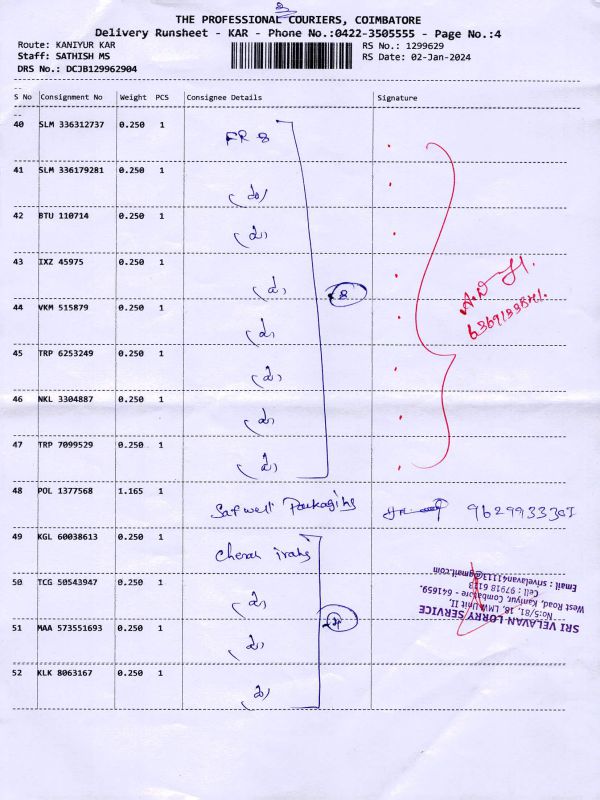 THE PROFESSIONAL COURIERS, COIMBATORE
Delivery Runsheet - KAR - Phone No.:0422-3505555 - Page No.:4
Route: KANIYUR KAR
RS No.: 1299629
Staff: SATHISH MS
RS Date: 02-Jan-2024
DRS No.: DCJB129962904
S No Consignment No Weight PCS Consignee Details Signature
40 SLM 336312737 0.250 1 FR 8
41 SLM 336179281 0.250 1
42 BTU 110714 0.250 1
43 IXZ 45975 0.250 1
8
44 VKM 515879 0.250 1
45 TRP 6253249 0.250 1
46 NKL 3304887 0.250 1
47 TRP 7099529 0.250 1
48 POL 1377568 1.165 1 Safwell Packaging 9629933301
49 KGL 60038613 0.250 1
50 TCG 50543947 0.250 1
51 MAA 573551693 0.250 1
52 KLK 8063167 0.250 1
SRI VELAVAN LORRY SERVICE
No:5/81, 18, LMW Unit II,
West Road, Kaniyur, Coimbatore - 641659.
Email : srivelavan41113@gmail.com